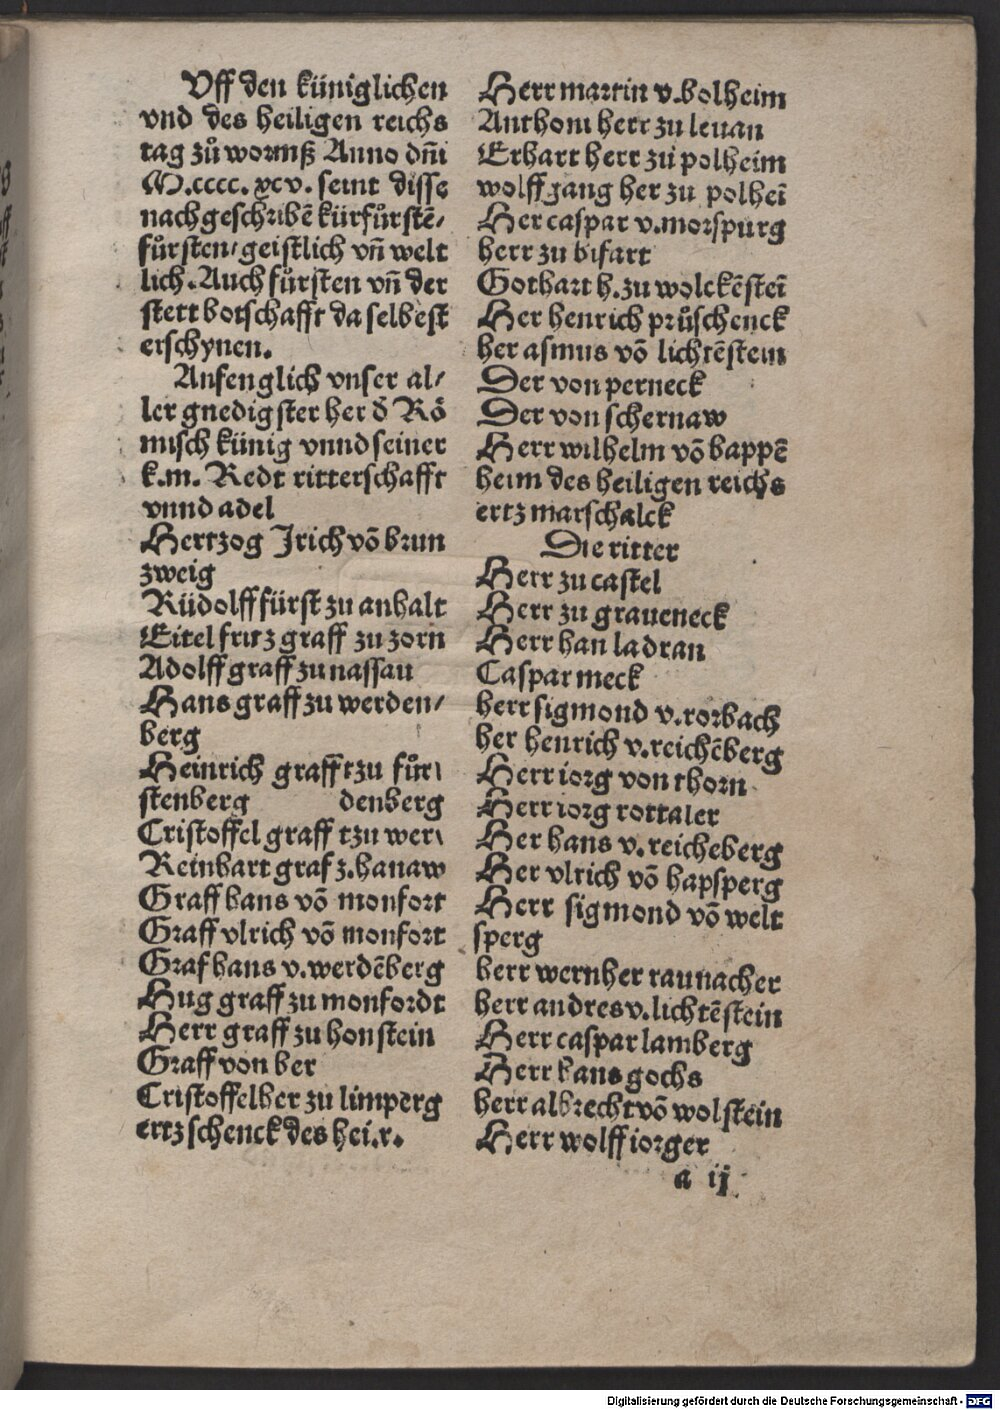 Vff den küniglichen
vnd des heiligen reichs
tag zů wormß Anno dñi
M.cccc. xcv. seint disse
nachgeschribē kürfůrstē/
fůrsten/geistlich vñ welt
lich.Auch fůrsten vñ der
stett botschafft da selbest
erschynen.
Anfenglich vnser al/
ler gnedigster her d̄ Rö
misch künig vnnd seiner
k.m. Redt ritterschafft
vnnd adel
Hertzog Jrich võ brun
zweig
Rüdolff fürst zu anhalt
Eitel fritz graff zu zorn
Adolff graff zu nassau
Hans graff zu werden/
berg
Heinrich graff tzu fůr/
stenberg denberg
Cristoffel graff tzu wer/
Reinhart graf z.hanaw
Graff hans võ monfort
Graff vlrich võ monfort
Graf hans v.werdēberg
Hug graff zu monfordt
Herr graff zu honstein
Graff von ber
Cristoffelher zu limperg
ertzschenck des hei.r.
Herr martin v.bolheim
Anthoni herr zu leuan
Erhart herr zů polheim
wolffgang her zu polheī
Her caspar v.morspurg
herr zu bifart
Gothart h.zu wolckēsteī
Her henrich průschenck
her asmus võ lichtēstein
Der von perneck
Der von schernaw
Herr wilhelm võ bappē
heim des heiligen reichs
ertz marschalck
Die ritter
Herr zu castel
Herr zu graueneck
Herr han ladran
Caspar meck
herr sigmond v.rorbach
her henrich v.reichēberg
Herr iorg von thorn
Herr iorg rottaler
Her hans v.reicheberg
Her vlrich võ hapsperg
Herr sigmond võ welt
sperg
herr wernher raunacher
herr andres v.lichtēstein
Herr caspar lamberg
Herr hans gochs
herr albrecht võ wolstein
Herr wolff iorger
a ij
Digitalisierung gefördert durch die Deutsche Forschungsgemeinschaft - DFG